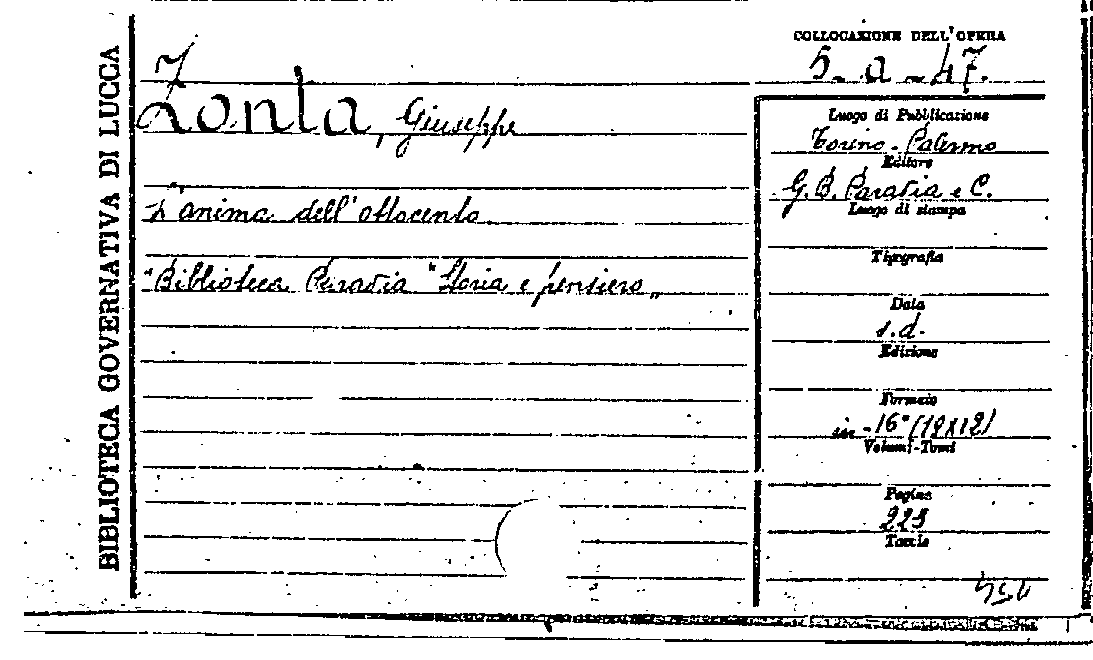 BIBLIOTECA GOVERNATIVA DI LUCCA
Z
Zonta, Giuseppe
L'anima dell'ottocento
"Biblioteca Paravia "Storia e pensiero„
COLLOCAZIONE DELL'OPERA
5-a-47.
Luogo di Pubblicazione
Torino-Palermo
Editore
G.B. Paravia e C.
Luogo di stampa
Tipografia
Data
s.d.
Edizione
Formato
in-16° (19X12)
Volumi-Tomi
Pagine
Tavole